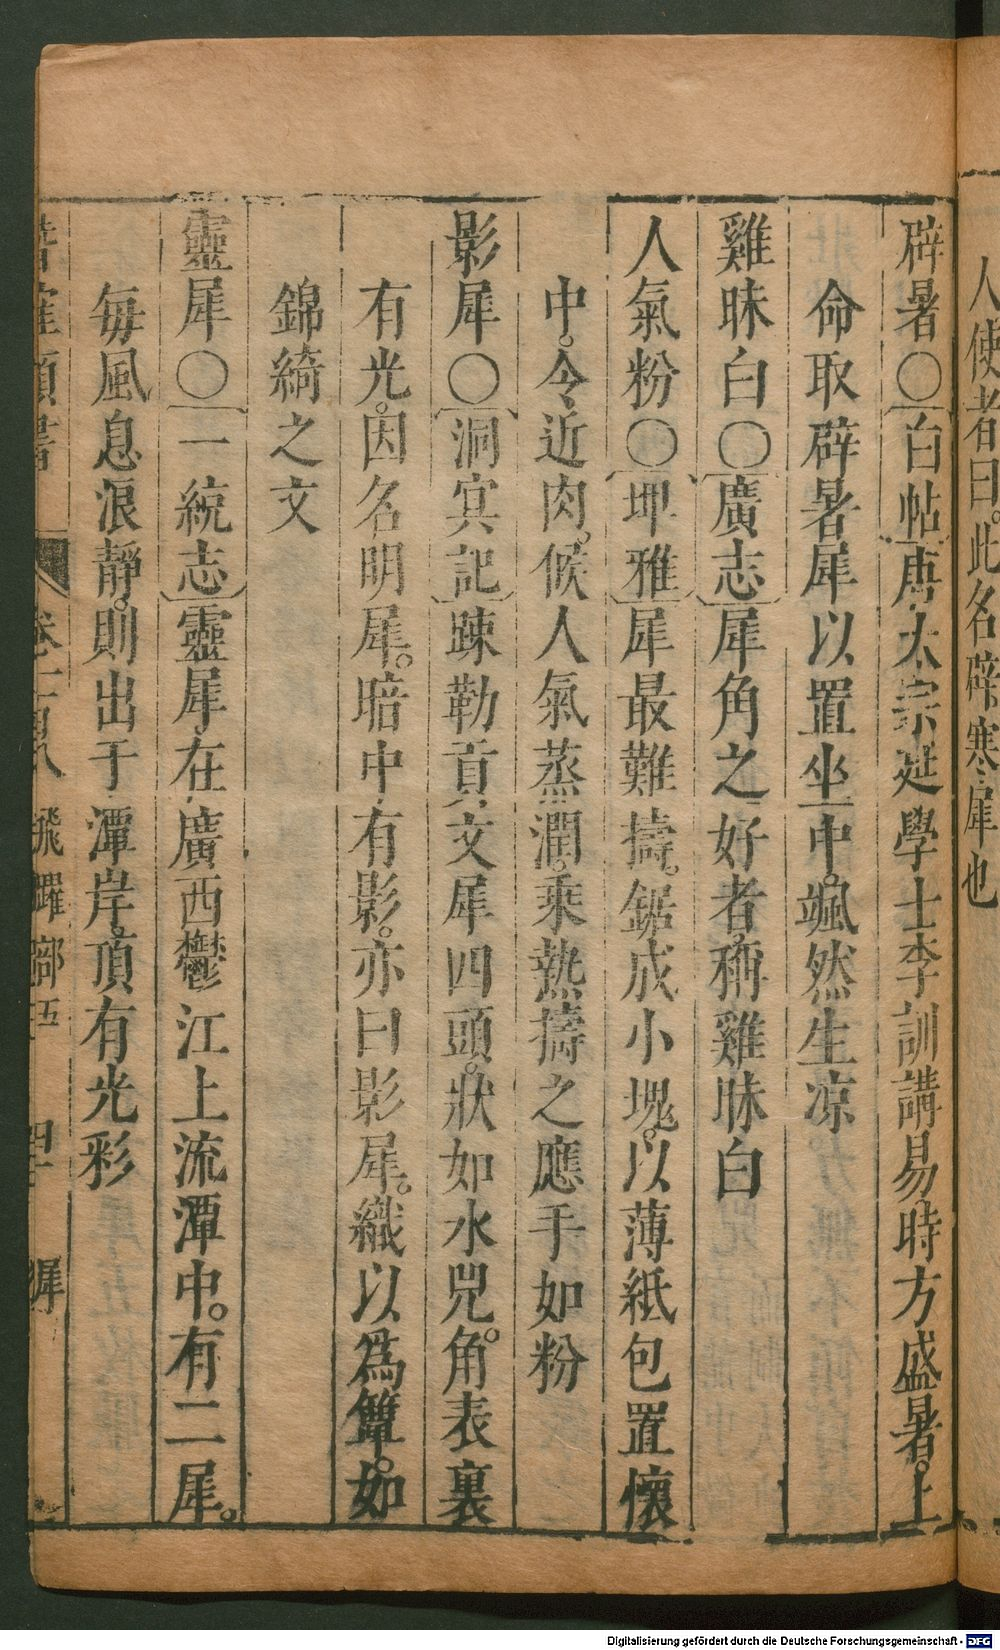 人使者曰此名辟寒犀也
辟暑〇白帖唐太宗延學士李訓講易時方盛暑。上
命取辟暑犀以置坐中。颯然生凉
雞昧白〇廣志犀角之好者。稱雞昧白
人氣粉〇埤雅犀最難擣。鋸成小塊。以薄紙包置懷
中。令近肉。候人氣蒸潤。乘熱擣之應手如粉
影犀〇洞㝠記踈勒貢文犀四頭。狀如水兕。角表裏
有光。因名明犀。暗中有影。亦曰影犀。織以爲簟。如
錦綺之文
靈犀〇一統志靈犀在廣西鬱江上流潭中。有二犀。
每風息浪靜。則出于潭岸。頂有光彩
卷一百八 飛躍部五 犀
Digitalisierung gefördert durch die Deutsche Forschungsgemeinschaft - DFG